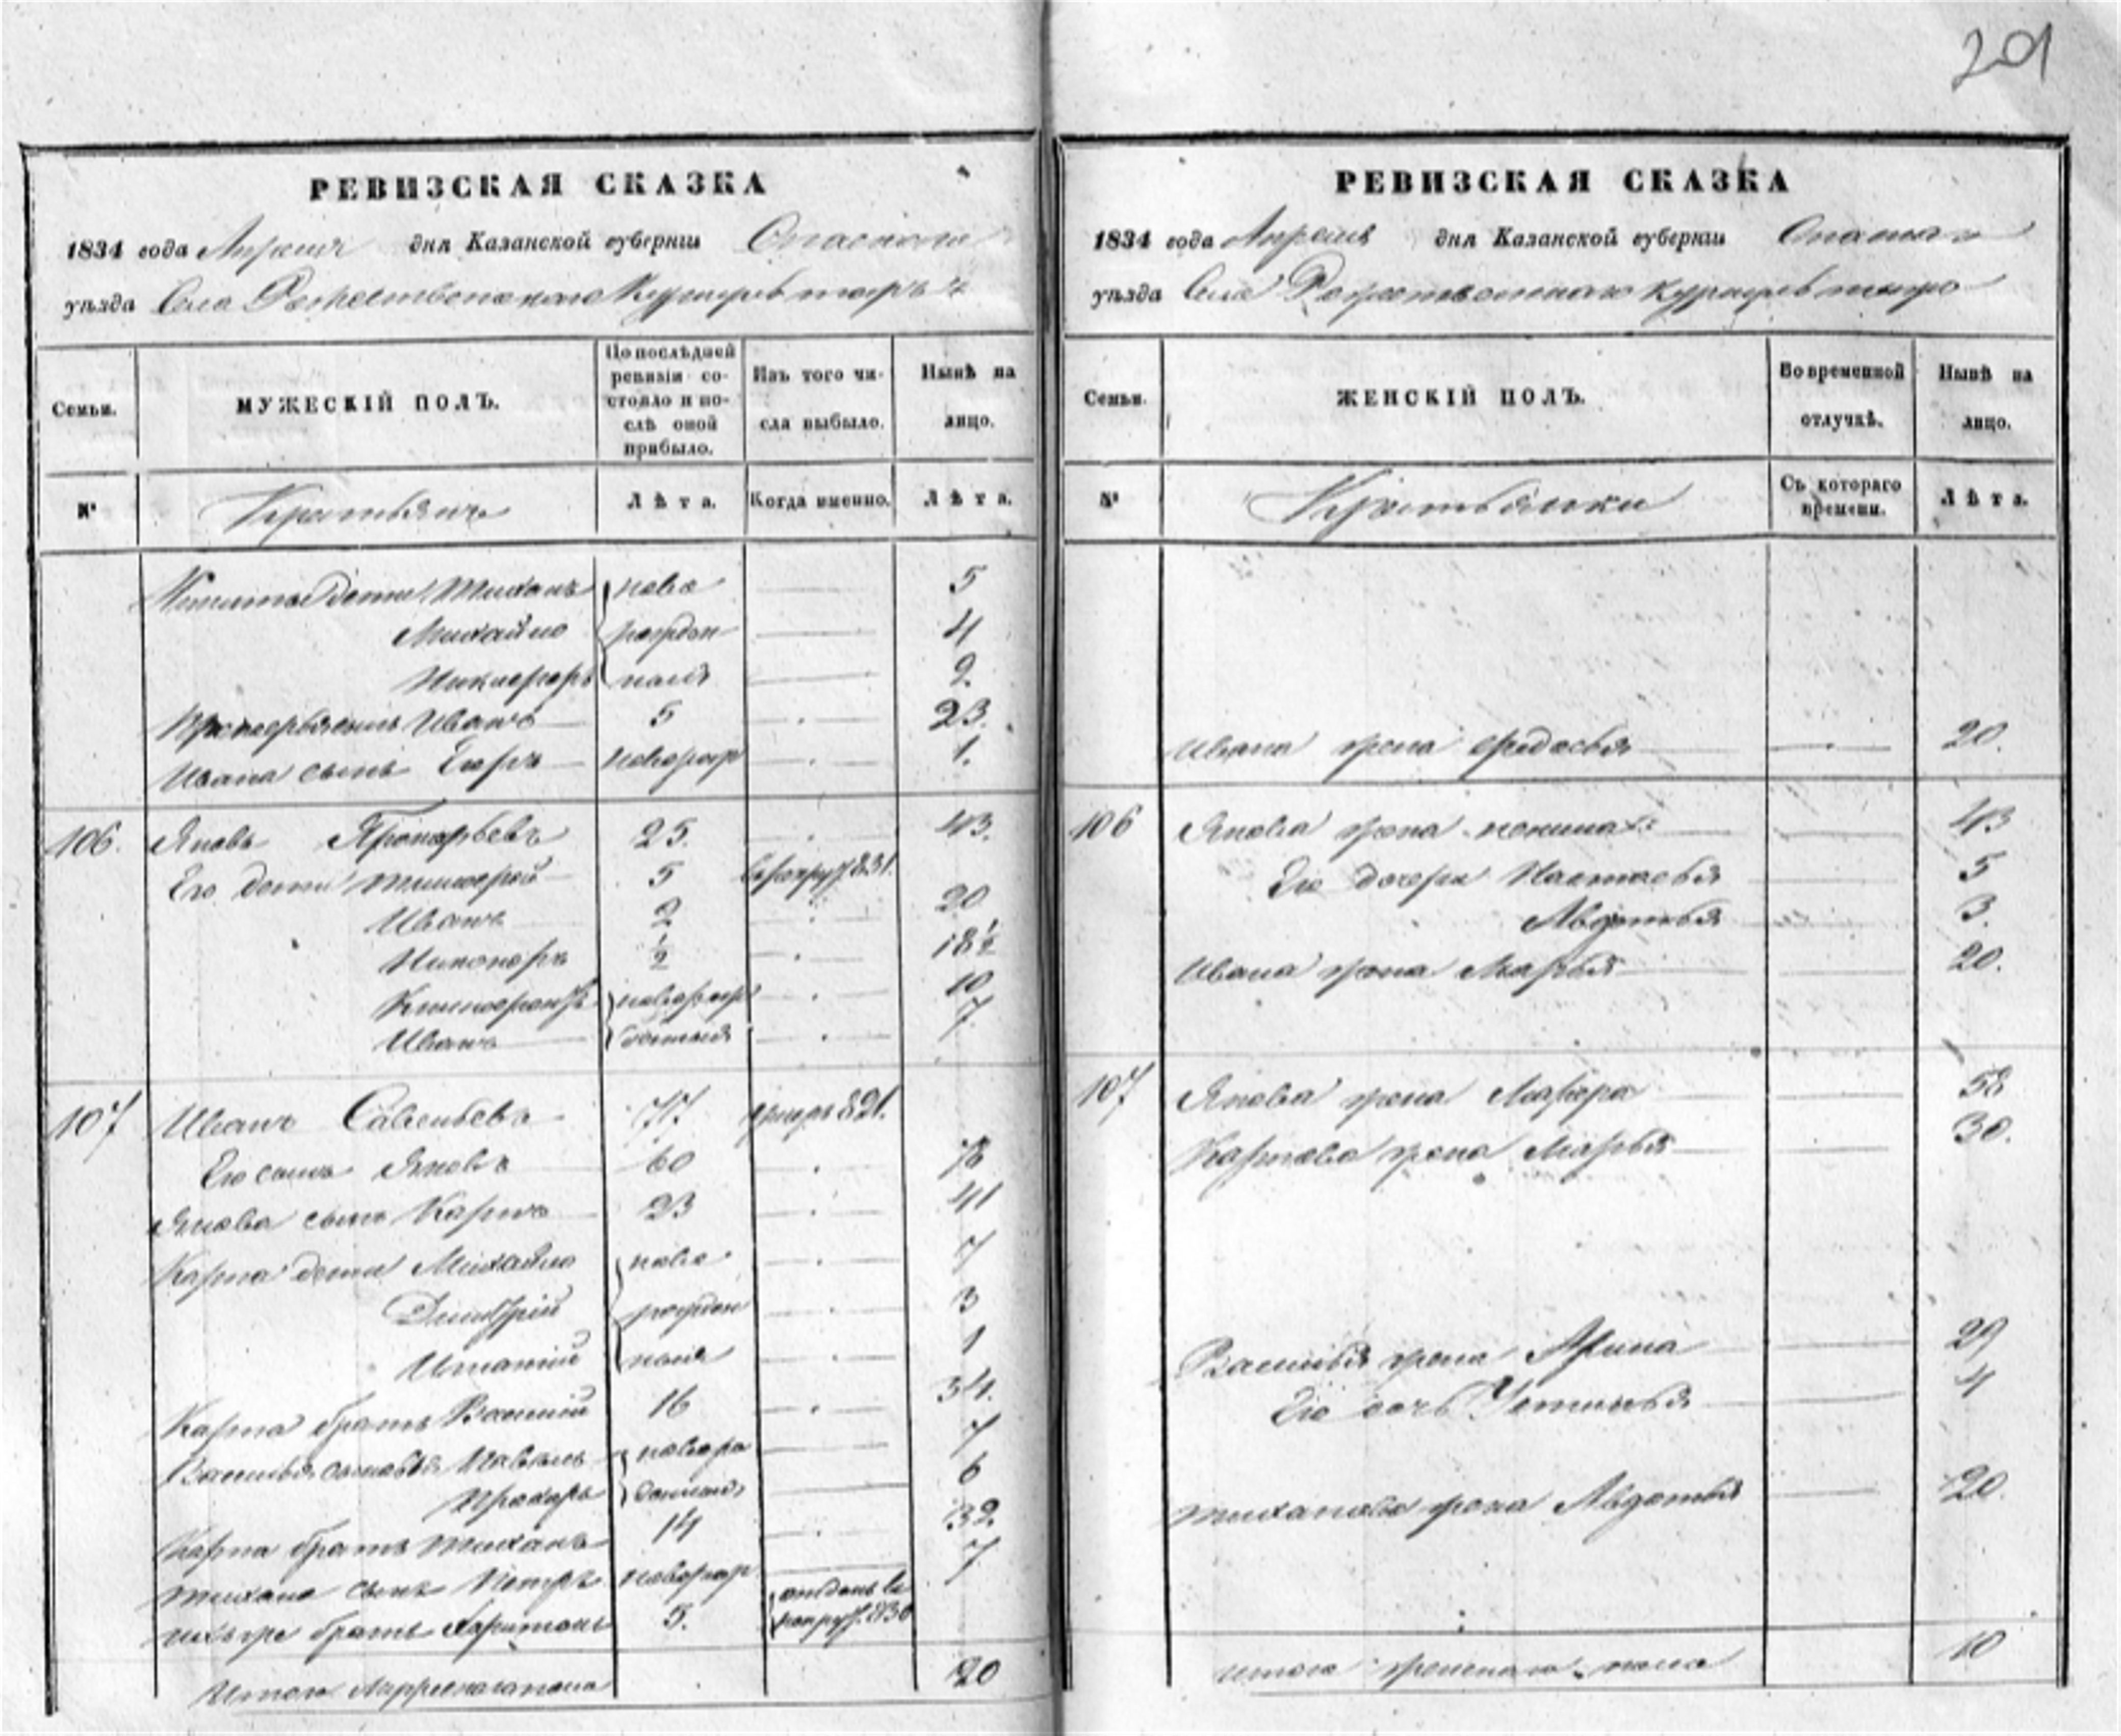 201
РЕВИЗСКАЯ СКАЗКА
1834 года Апреля дня Казанской губернии Спаскаго
уѣзда Села Рожественскаго
Семьи.
МУЖЕСКІЙ ПОЛЪ.
По послѣдней ревизіи состояло и послѣ оной прибыло.
Изъ того числа выбыло.
Нынѣ на лицо.
№
Крестьяне
Лѣта.
Когда именно.
Лѣта.
Никиты дети Тиханъ ново 5
Михайло рожден 4
Никифоръ ные 2.
Иванъ 5 23.
Ивана сынъ Егоръ новорож 1.
106. Яковъ Прокофьевъ 25. 43.
Его дети Тимофей 5 831.
Иванъ 2 20
Никоноръ ½ 18½
новорож 10
Иванъ денныя 7
107 Иванъ Савельевъ 77 умеръ 821.
Его сынъ Яковъ 60 78
Якова сынъ Карпъ 23 41
Карпа дети Михайло ново 7
Дмитрій рожден 3
Игнатій ныя 1
Карпа братъ Василій 16 34.
Василья сыновья Павелъ новоро 7
Прохоръ 6
Карпа братъ Тиханъ 14 32.
Тихана сынъ Петръ новорож 7
братъ Харитонъ 5. отданъ въ рекруты 830
Итого 20
РЕВИЗСКАЯ СКАЗКА
1834 года Апреля дня Казанской губерніи
уѣзда Села
Семьи.
ЖЕНСКІЙ ПОЛЪ.
Во временной отлучкѣ.
Нынѣ на лицо.
№
Крестьянки
Съ котораго времени.
Лѣта.
Ивана жена Федосья 20.
106 Якова жена 43
Его дочери Настасья 5
Авдотья 3.
Ивана жена Марья 20.
107 Якова жена 58
Карпова жена Марья 30.
Василья жена Арина 29
Его дочь Устинья 4
Тиханова жена Авдотья 20.
Итого женскаго пола 10